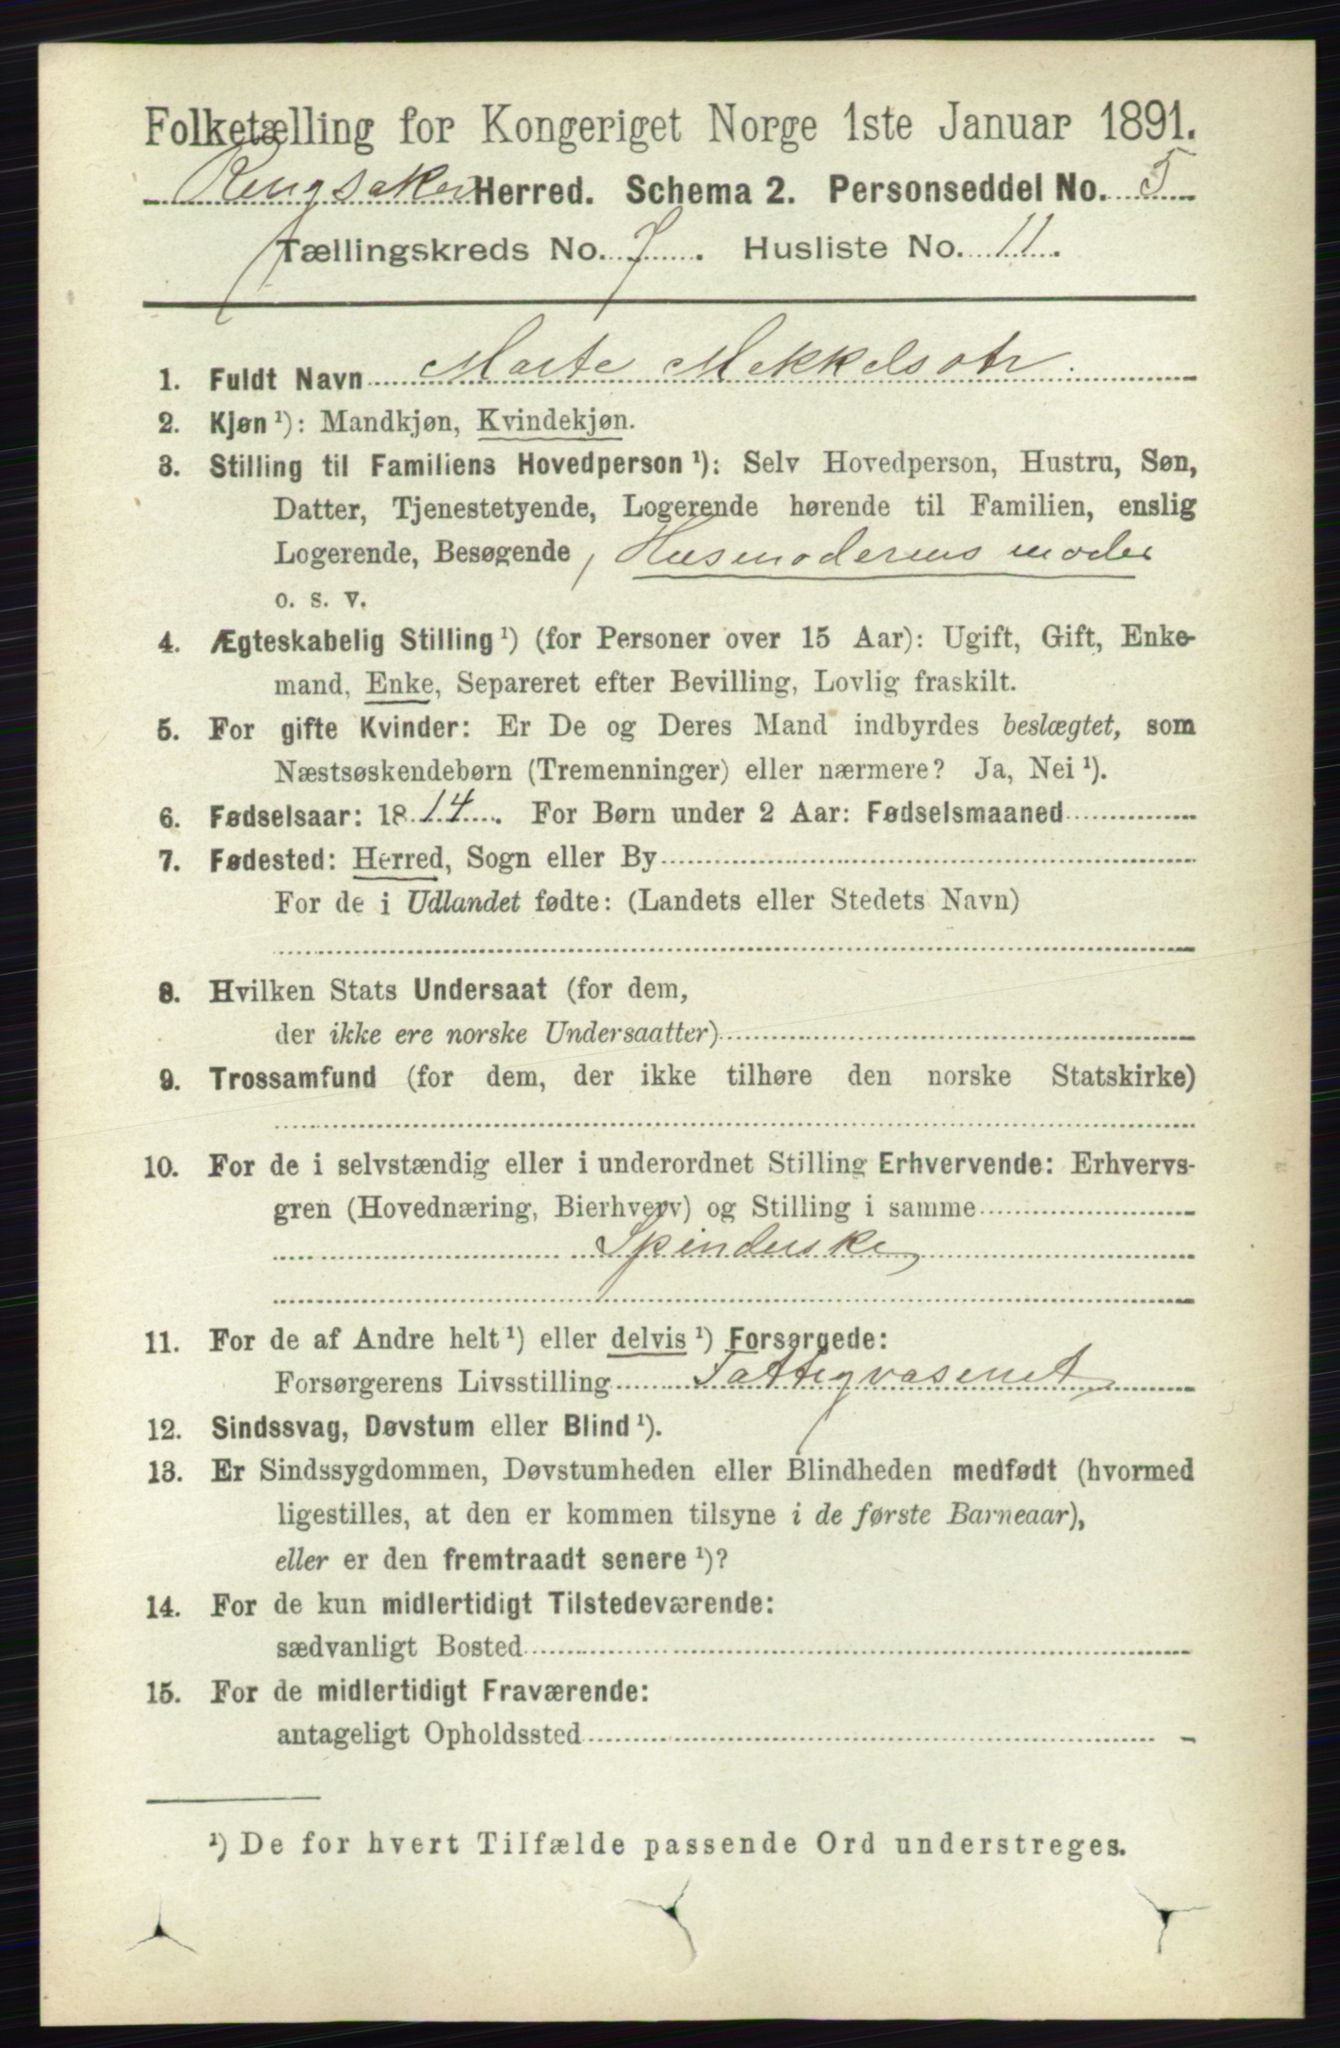 Folketælling for Kongeriget Norge 1ste Januar 1891.
Ringsaker Herred. Schema 2. Personseddel No. 5
Tællingskreds No. 7. Husliste No. 11.
1. Fuldt Navn Marte Mekkelsdtr.
2. Kjøn ¹): Mandkjøn, Kvindekjøn.
3. Stilling til Familiens Hovedperson ¹): Selv Hovedperson, Hustru, Søn,
Datter, Tjenestetyende, Logerende hørende til Familien, enslig
Logerende, Besøgende, Husmoderens moder
o. s. v.
4. Ægteskabelig Stilling ¹) (for Personer over 15 Aar): Ugift, Gift, Enke-
mand, Enke, Separeret efter Bevilling, Lovlig fraskilt.
5. For gifte Kvinder: Er De og Deres Mand indbyrdes beslægtet, som
Næstsøskendebørn (Tremenninger) eller nærmere? Ja, Nei ¹).
6. Fødselsaar: 1814. For Børn under 2 Aar: Fødselsmaaned
7. Fødested: Herred, Sogn eller By
For de i Udlandet fødte: (Landets eller Stedets Navn)
8. Hvilken Stats Undersaat (for dem,
der ikke ere norske Undersaatter)
9. Trossamfund (for dem, der ikke tilhøre den norske Statskirke)
10. For de i selvstændig eller i underordnet Stilling Erhvervende: Erhvervs-
gren (Hovednæring, Bierhverv) og Stilling i samme
Spinderske
11. For de af Andre helt ¹) eller delvis ¹) Forsørgede:
Forsørgerens Livsstilling Fattigvæsenet
12. Sindssvag, Døvstum eller Blind ¹).
13. Er Sindssygdommen, Døvstumheden eller Blindheden medfødt (hvormed
ligestilles, at den er kommen tilsyne i de første Barneaar),
eller er den fremtraadt senere ¹)?
14. For de kun midlertidigt Tilstedeværende:
sædvanligt Bosted
15. For de midlertidigt Fraværende:
antageligt Opholdssted
¹) De for hvert Tilfælde passende Ord understreges.